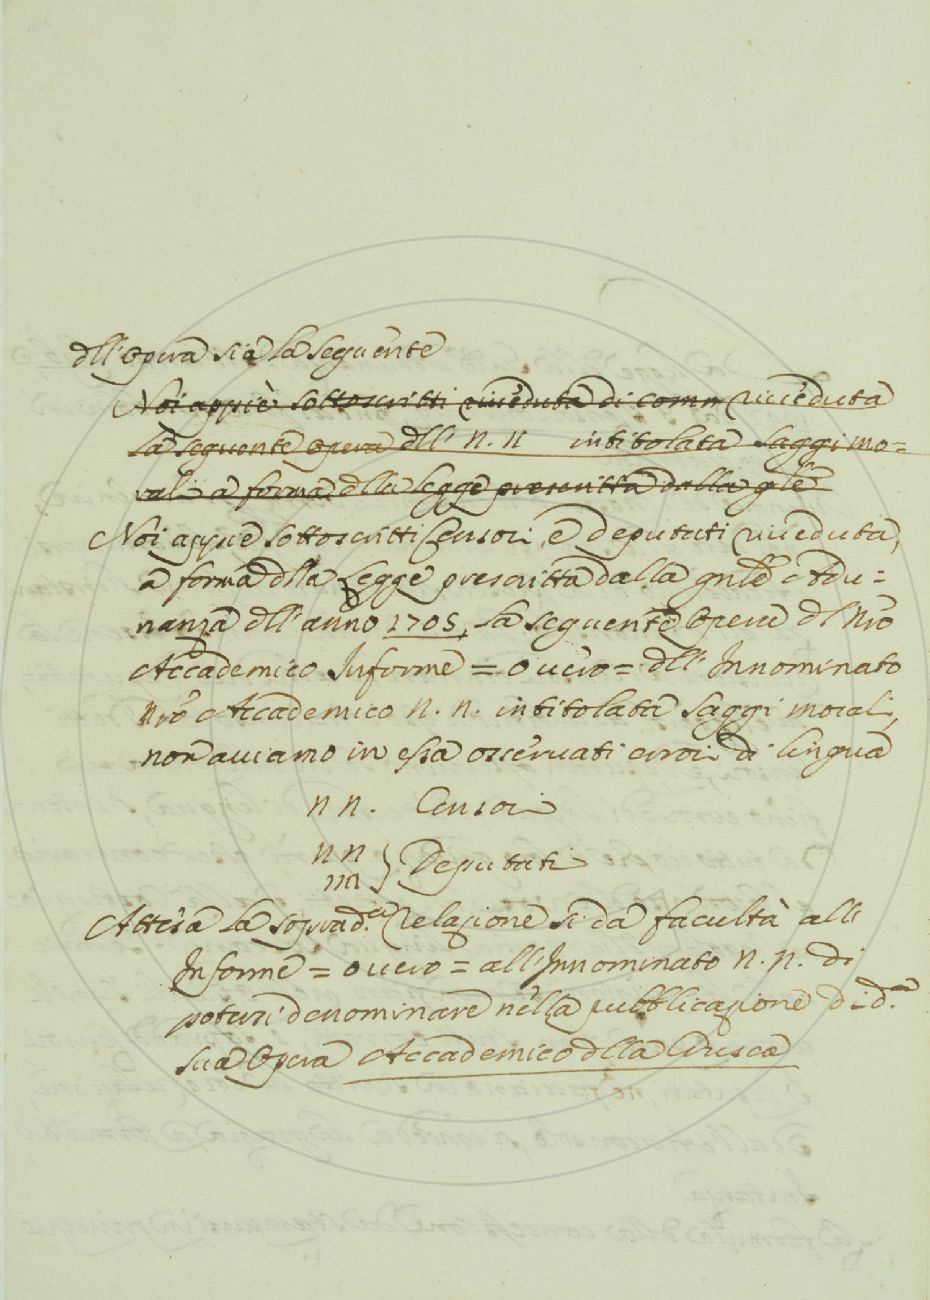 dll'Opera sia la seguente
Noi appiè sottoscritti riveduta di comm riveduta
la seguente opera dll' N. N intitolata Saggi mo=
rali a forma dlla legge prescritta dalla gnle
Noi appiè sottoscritti Censori, e Deputati riveduta,
a forma dlla Legge prescritta dalla gnle Adu=
nanza dll' anno 1705, la seguente Opera dl Nro
Accademico Informe = ovvero = dll' Innominato
Nro Accademico N. N. intitolata Saggi morali,
non aviamo in essa osservati errori di lingua
N N. Censori
N N } Deputati
NN
Attesa la soprad.ta Relazione si dà facultà all'
Informe = ovvero = all'Innominato N. N. di
potersi denominare nella pubblicazione di d.a
sua Opera Accademico dlla Crusca